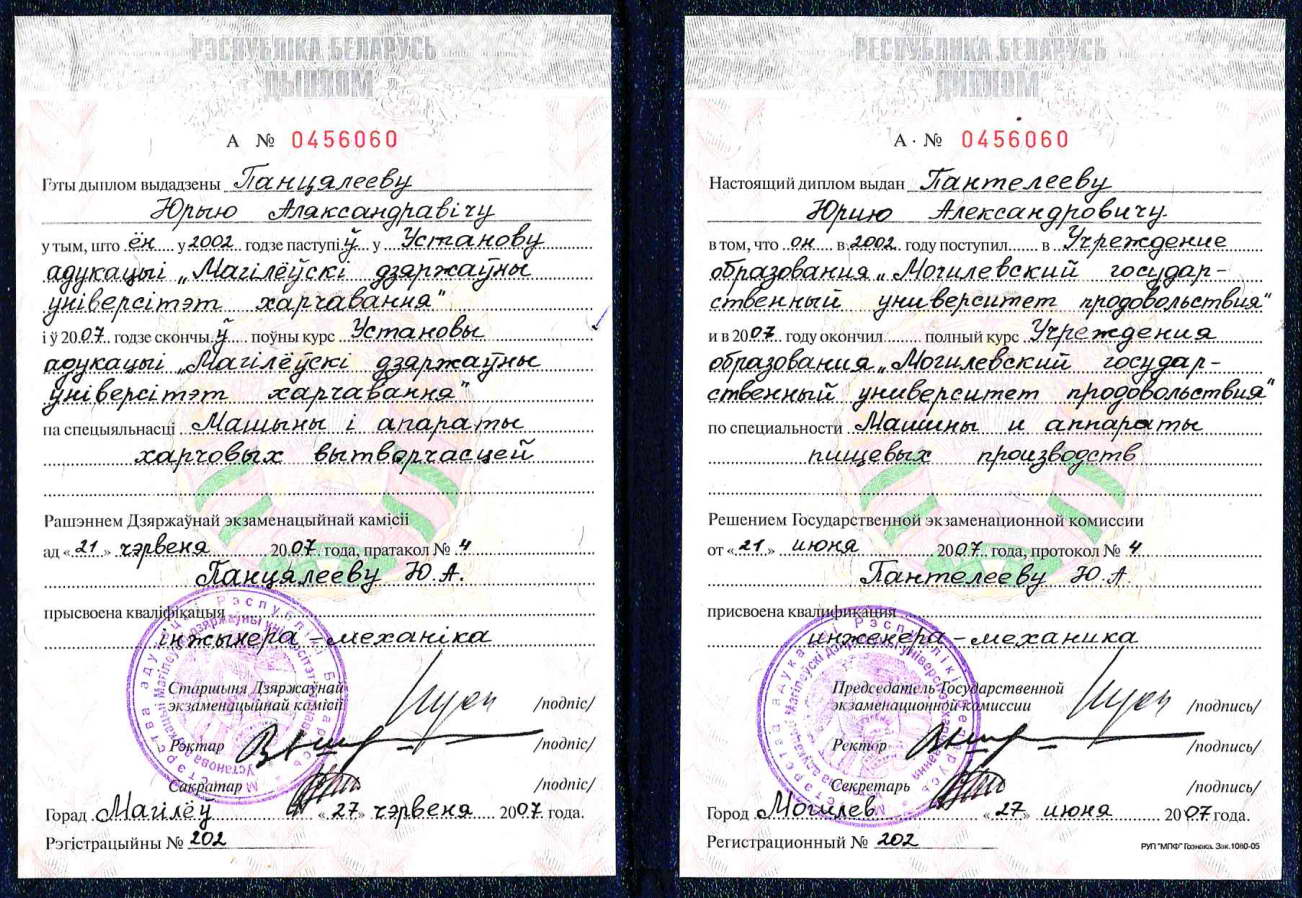 РЭСПУБЛІКА БЕЛАРУСЬ
ДЫПЛОМ
А № 0456060
Гэты дыплом выдадзены Панцялееву
Юрыю Аляксандравічу
у тым, што ён у 2002 годзе паступіў у Установу
адукацыі „Магілёўскі дзяржаўны
універсітэт харчавання"
і ў 2007 годзе скончыў поўны курс Установы
адукацыі „Магілёўскі дзяржаўны
універсітэт харчавання"
па спецыяльнасці Машыны і апараты
харчовых вытворчасцей
Рашэннем Дзяржаўнай экзаменацыйнай камісіі
ад «21» чэрвеня 2007 года, пратакол № 4
Панцялееву Ю.А.
прысвоена кваліфікацыя
інжынера-механіка
Старшыня Дзяржаўнай
экзаменацыйнай камісіі /подпіс/
Рэктар /подпіс/
Сакратар /подпіс/
Горад Магілёў «27» чэрвеня 2007 года.
Рэгістрацыйны № 202
РЕСПУБЛИКА БЕЛАРУСЬ
ДИПЛОМ
А № 0456060
Настоящий диплом выдан Пантелееву
Юрию Александровичу
в том, что он в 2002 году поступил в Учреждение
образования „Могилевский государ-
ственный университет продовольствия"
и в 2007 году окончил полный курс Учреждения
образования „Могилевский государ-
ственный университет продовольствия"
по специальности Машины и аппараты
пищевых производств
Решением Государственной экзаменационной комиссии
от «21» июня 2007 года, протокол № 4
Пантелееву Ю.А.
присвоена квалификация
инженера-механика
Председатель Государственной
экзаменационной комиссии /подпись/
Ректор /подпись/
Секретарь /подпись/
Город Могилев «27» июня 2007 года.
Регистрационный № 202
РУП "МПФ" Гознака. Зак.1080-05